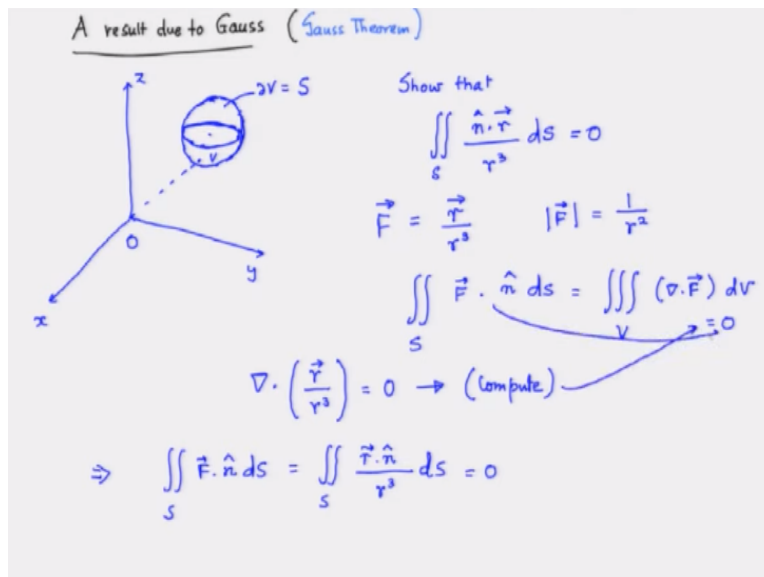 A result due to Gauss (Gauss Theorem)
z
∂V = S
V
O
y
x
Show that
∬_S (n̂·r⃗)/r³ ds = 0
F⃗ = r⃗/r³    |F⃗| = 1/r²
∬_S F⃗ · n̂ ds = ∭_V (∇·F⃗) dv
= 0
∇·(r⃗/r³) = 0 → (Compute)
⇒ ∬_S F⃗·n̂ ds = ∬_S (r⃗·n̂)/r³ ds = 0